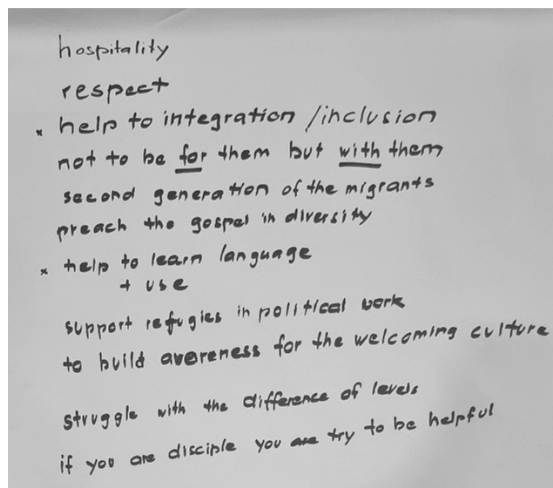 hospitality
respect
* help to integration / inclusion
not to be for them but with them
second generation of the migrants
preach the gospel in diversity
* help to learn language
+ use
support refugies in political work
to build avereness for the welcoming culture
struggle with the difference of levels
if you are disciple you are try to be helpful